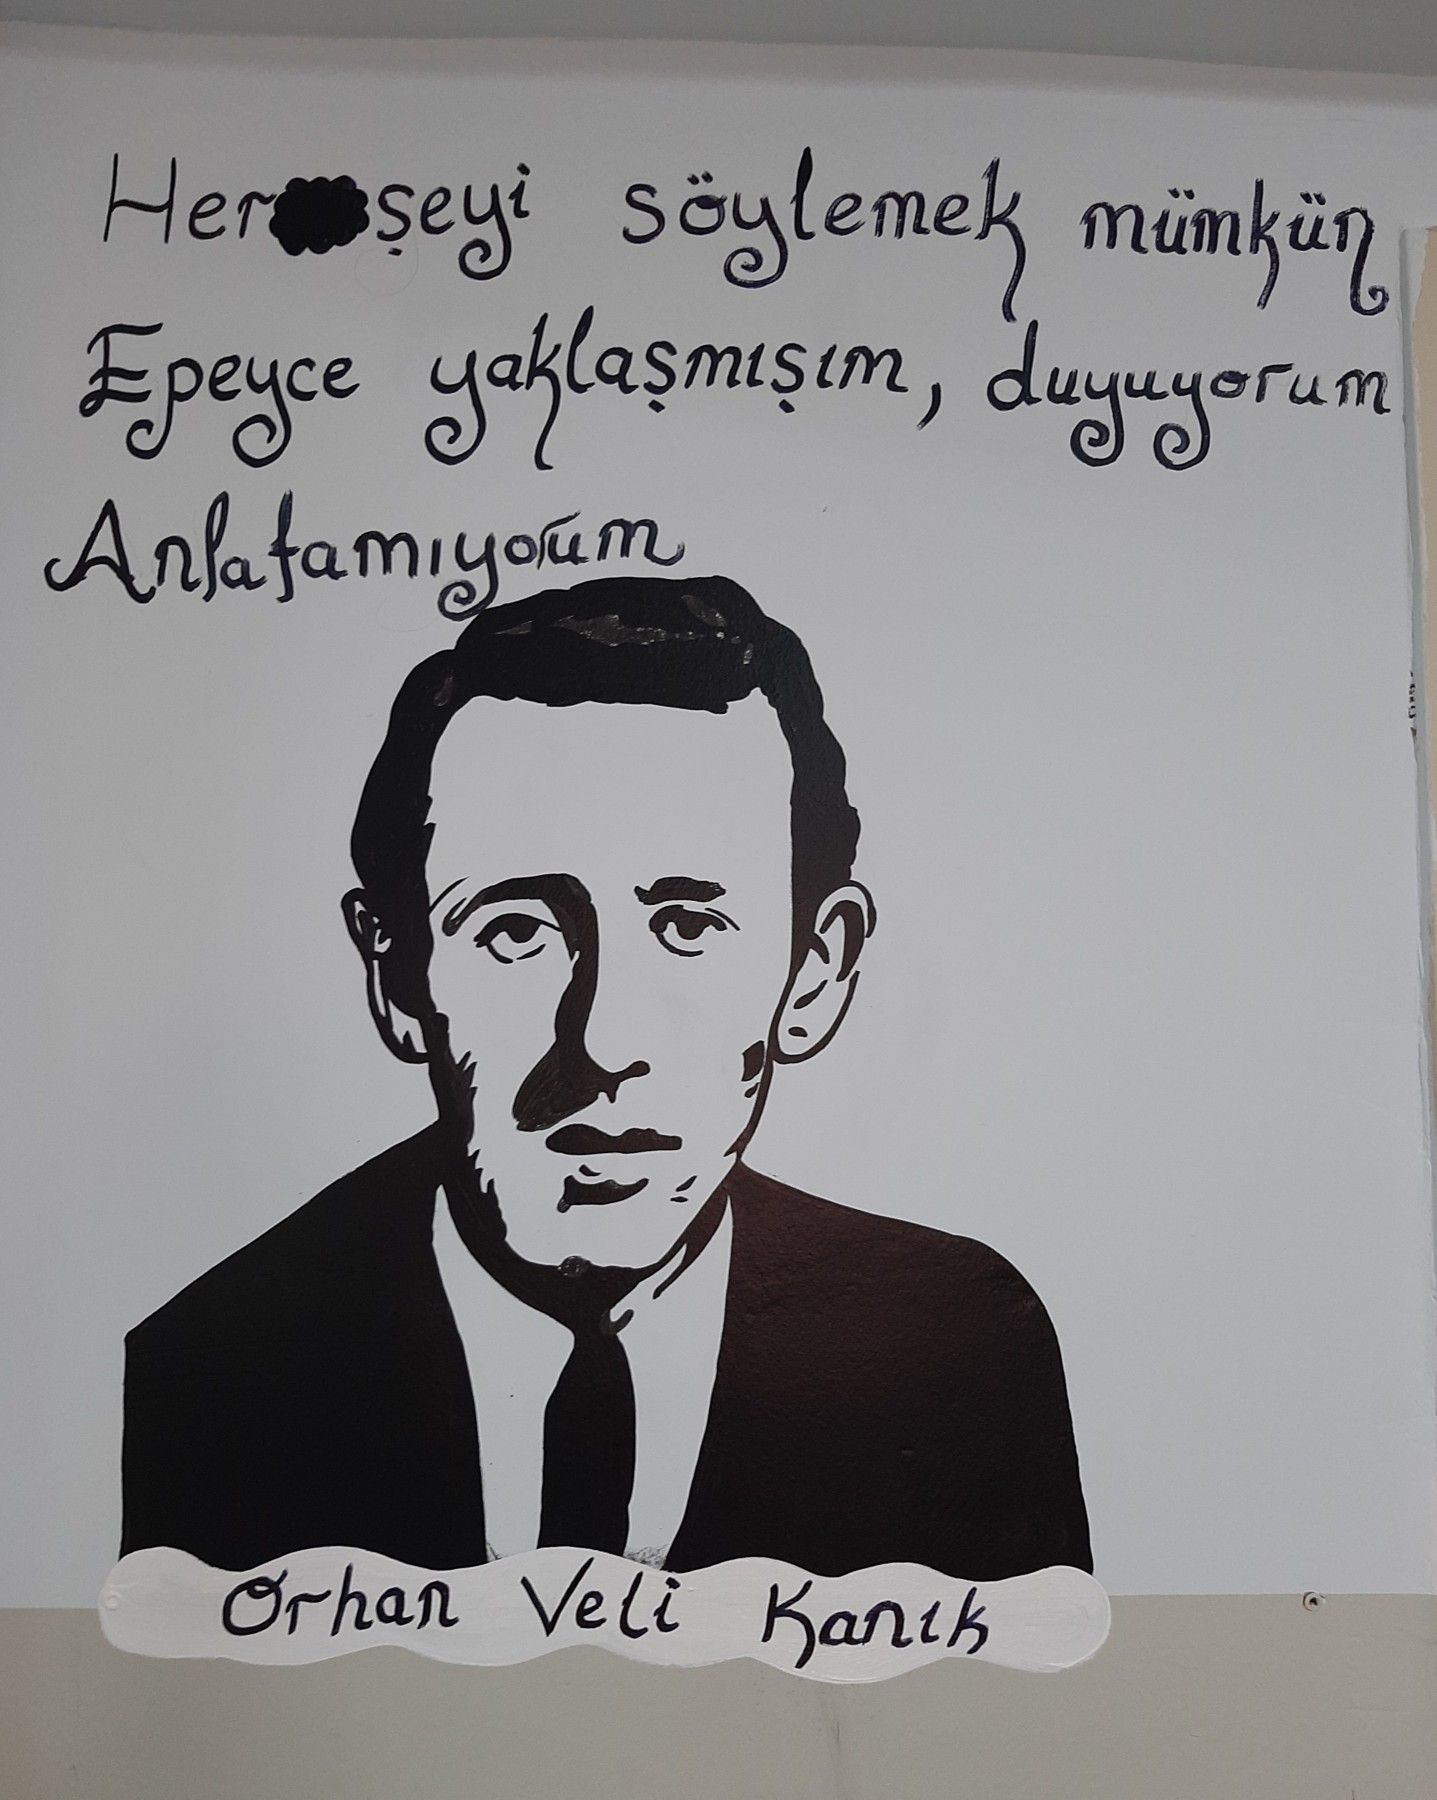 Her şeyi söylemek mümkün
Epeyce yaklaşmışım, duyuyorum
Anlatamıyorum
Orhan Veli Kanık